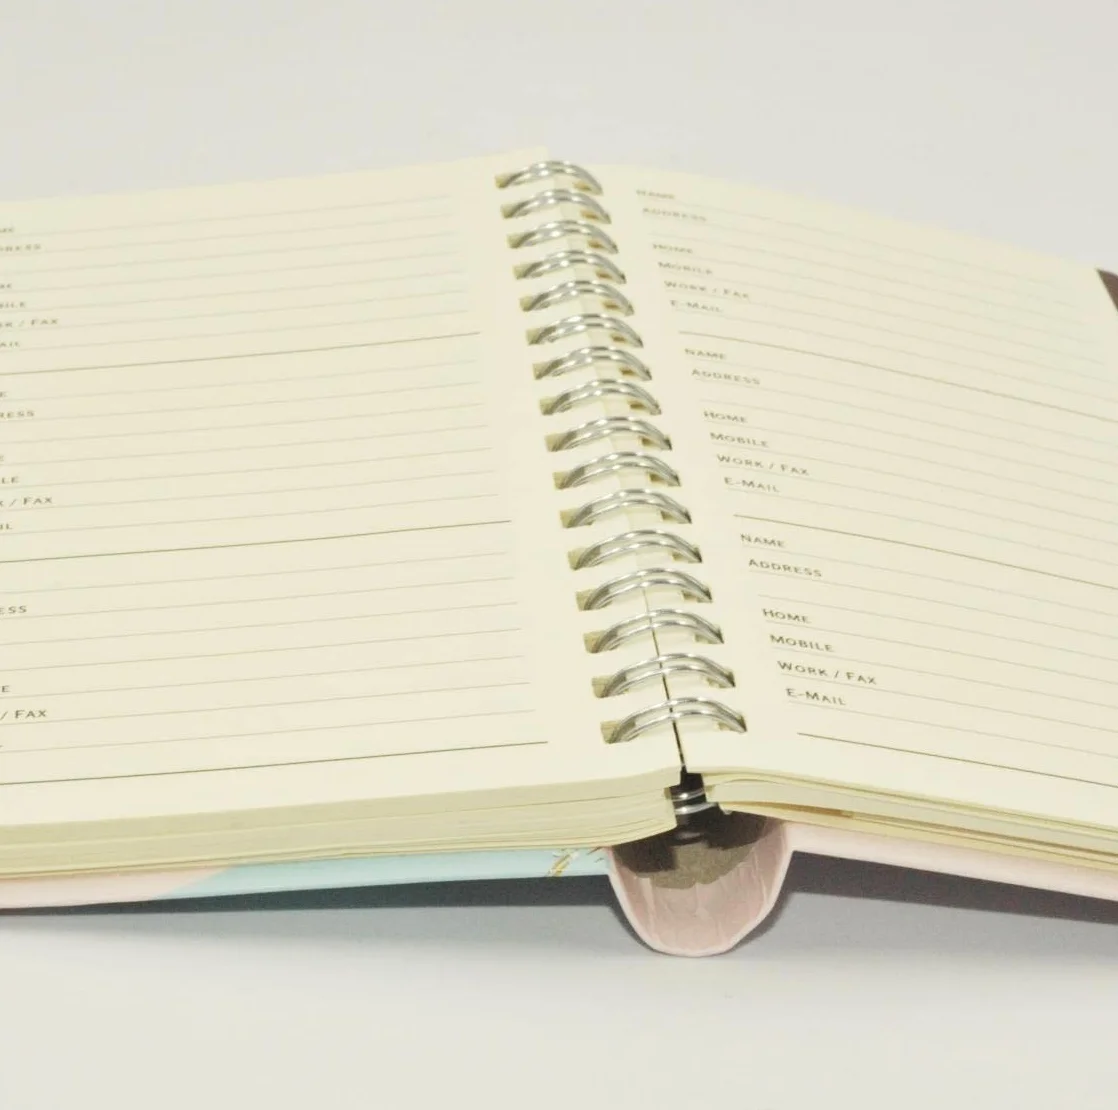 ME
RESS
ME
BILE
RK / FAX
AIL
E
RESS
E
LE
K / FAX
IL
ESS
E
/ FAX
NAME
ADDRESS
HOME
MOBILE
WORK / FAX
E-MAIL
NAME
ADDRESS
HOME
MOBILE
WORK / FAX
E-MAIL
NAME
ADDRESS
HOME
MOBILE
WORK / FAX
E-MAIL